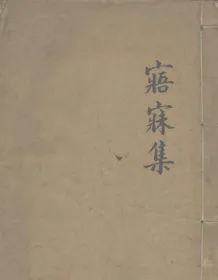 寤寐集